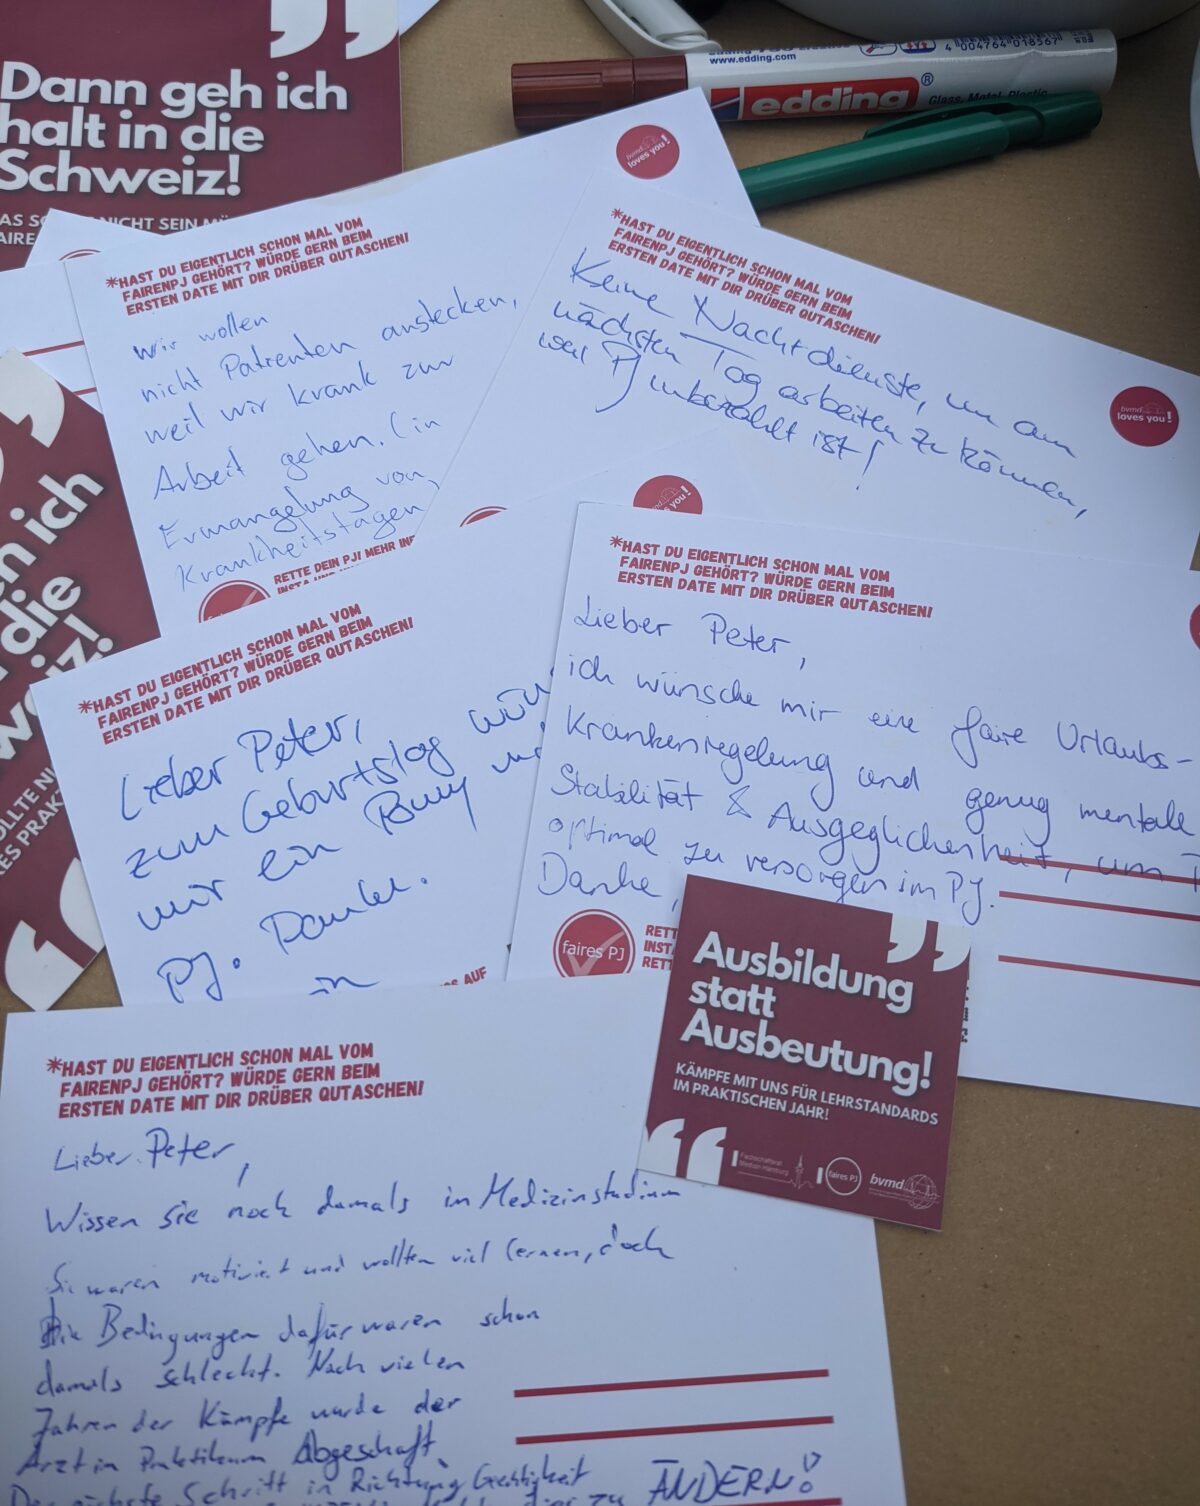 Dann geh ich
halt in die
Schweiz!
NICHT SEIN
www.edding.com
4 004764 018367
edding®
Glass, Metal, Plastic
bvmd
loves you!
*HAST DU EIGENTLICH SCHON MAL VOM
FAIRENPJ GEHÖRT? WÜRDE GERN BEIM
ERSTEN DATE MIT DIR DRÜBER QUTASCHEN!
wir wollen
nicht Patienten anstecken,
weil wir krank zur
Arbeit gehen. (in
Ermangelung von
Krankheitstagen
RETTE DEIN PJ! MEHR
*HAST DU EIGENTLICH SCHON MAL VOM
FAIRENPJ GEHÖRT? WÜRDE GERN BEIM
ERSTEN DATE MIT DIR DRÜBER QUTASCHEN!
Keine Nachtdienste, um am
nächsten Tag arbeiten zu können,
weil PJ unbezahlt ist!
bvmd
loves you!
ich
die
loves you!
*HAST DU EIGENTLICH SCHON MAL VOM
FAIRENPJ GEHÖRT? WÜRDE GERN BEIM
ERSTEN DATE MIT DIR DRÜBER QUTASCHEN!
Lieber Peter,
zum Geburtstag
mir ein
PJ. Danke.
AUF
*HAST DU EIGENTLICH SCHON MAL VOM
FAIRENPJ GEHÖRT? WÜRDE GERN BEIM
ERSTEN DATE MIT DIR DRÜBER QUTASCHEN!
Lieber Peter,
ich wünsche mir eine faire Urlaubs-
Krankenregelung und genug mentale
Stabilität & Ausgeglichenheit, um
optimal zu versorgen im PJ.
Danke,
faires PJ
Ausbildung
statt
Ausbeutung!
KÄMPFE MIT UNS FÜR LEHRSTANDARDS
IM PRAKTISCHEN JAHR!
Fachschaftsrat
Medizin Hamburg
faires PJ
bvmd
*HAST DU EIGENTLICH SCHON MAL VOM
FAIRENPJ GEHÖRT? WÜRDE GERN BEIM
ERSTEN DATE MIT DIR DRÜBER QUTASCHEN!
Lieber Peter,
Wissen sie noch damals im Medizinstudium
Sie waren motiviert und wollten viel lernen, doch
Die Bedingungen dafür waren schon
damals schlecht. Nach vielen
Jahren der Kämpfe wurde der
Arzt in Praktikum Abgeschaft.
Der nächste Schritt in Richtung
zu ÄNDERN!